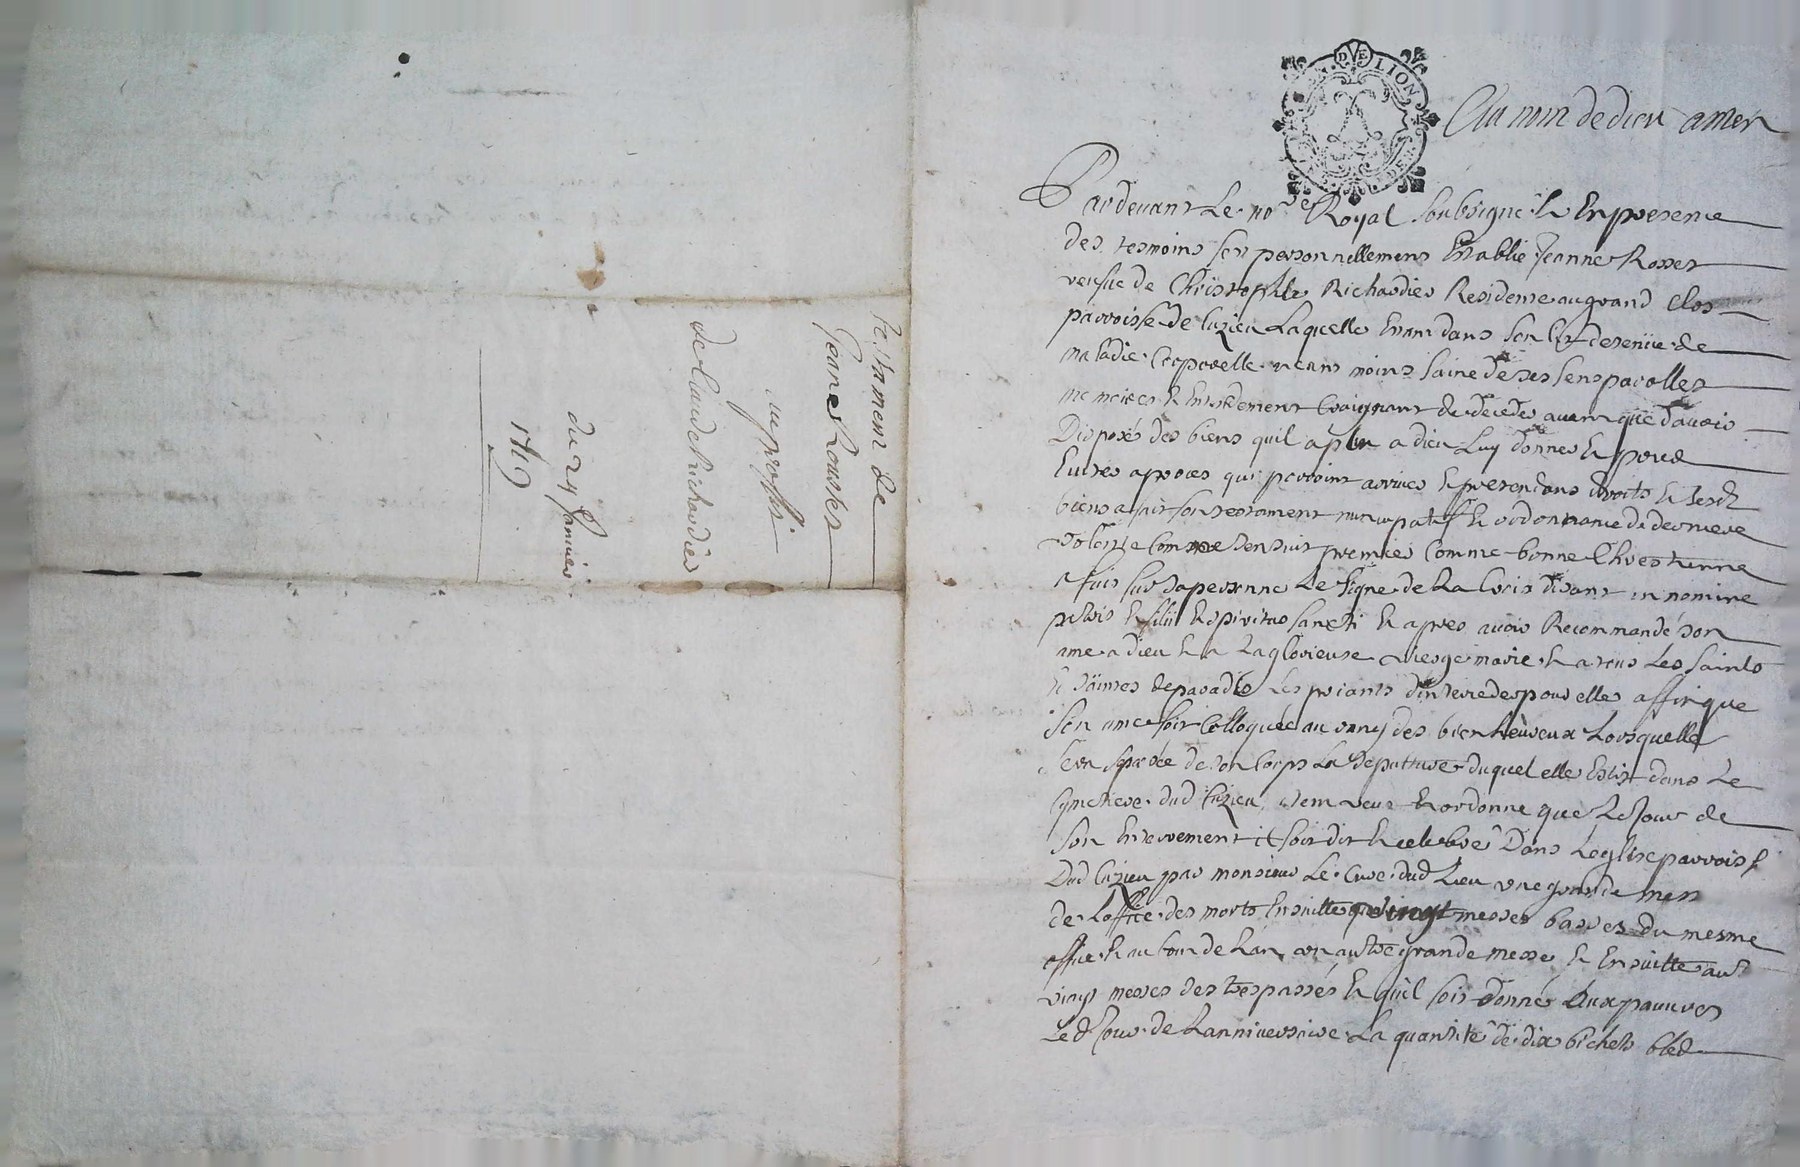 Testament de
Jeanne Rousset
au proffit
de Claude Richardier
du 29 Janvier
1719
DE LION
Au nom de dieu amen
Pardevant Le no.re Royal soubsigné & En presence
des tesmoins fut personnellement Establie Jeanne Rosset
veufue de Christophle Richardier Residente au grand Clos
parroisse de Cuzieu Laquelle Estant dans son lit detenüe de
maladie Corporelle neans moins saine de ses sens parolles
memoires & Entendement Craignant de deceder avant que d'avoir
Disposés des biens quil a plu a dieu Luy donner & pour
Euiter a proces qui pourroint arriver Es pretendans droits & sesd
biens a fait son testament nuncupatif & ordonnance de derniere
volonté Comme sensuit premier Comme bonne Chrestienne
a fait sur sa personne Le signe de La Croix disant in nomine
patris & filii & spiritus sancti & apres avoir Recommandé son
ame a dieu & a La glorieuse vierge marie & a tous Les saints
& saintes de paradis Les priants d'interceder pour elle affin que
son ame soit Colloquée au rang des bien heureux Lorsquelle
sera separée de son Corps La sepulture duquel elle Eslit dans Le
cymetiere dud Cuzieu, item veut & ordonne que Le Jour de
son Enterrement il soit dit & celebré Dans Leglise parroiss.
Dud Cuzieu par monsieur Le Curé dud Lieu une grande mess
de Loffice des morts Ensuitte vingt messes basses du mesme
office & au bout de Lan un autre grande messe & Ensuitte aut
vingt messes des trespassés & quil soit donné Aux pauvres
Led Jour de Lanniversaire La quantité de dix bichets bled